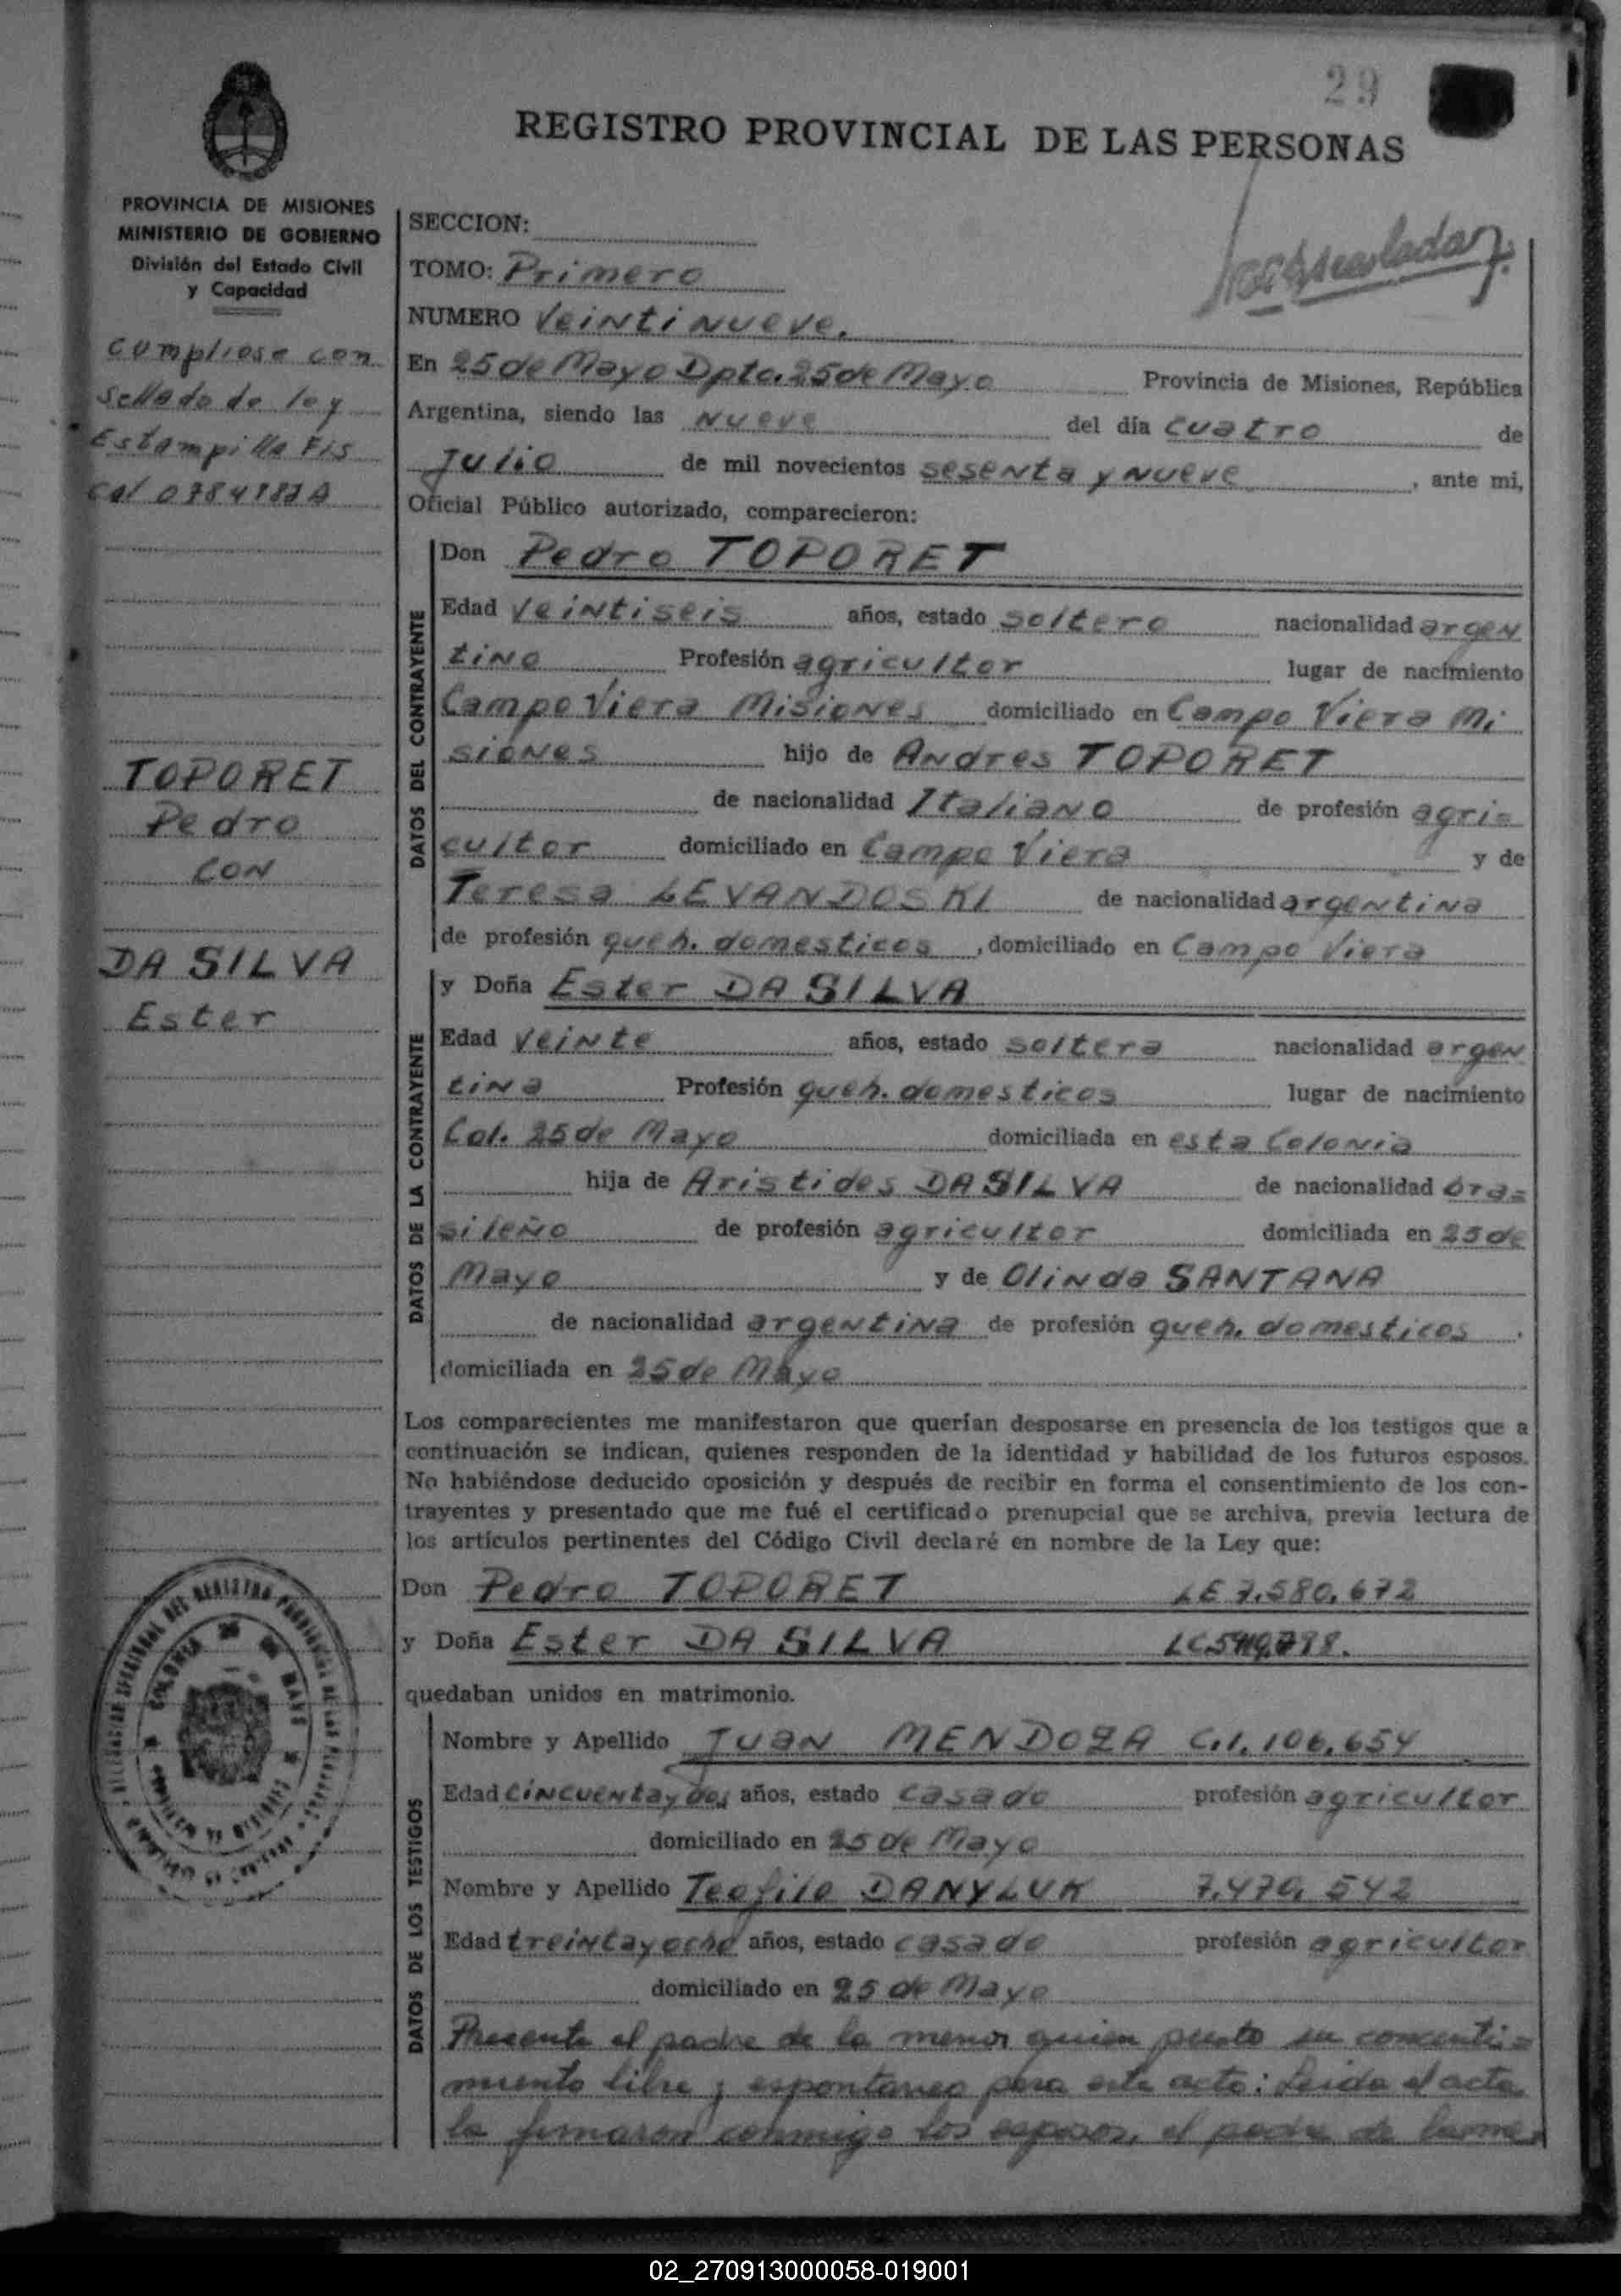 29
REGISTRO PROVINCIAL DE LAS PERSONAS
PROVINCIA DE MISIONES
MINISTERIO DE GOBIERNO
División del Estado Civil
y Capacidad
cumpliose con
sellado de ley
Estampilla Fis
cal
TOPORET
Pedro
CON
DA SILVA
Ester
SECCION:
TOMO: Primero
NUMERO Veintinueve.
En 25 de Mayo Dpto. 25 de Mayo Provincia de Misiones, República
Argentina, siendo las Nueve del día cuatro de
Julio de mil novecientos sesenta y Nueve, ante mi,
Oficial Público autorizado, comparecieron:
DATOS DEL CONTRAYENTE
Don Pedro TOPORET
Edad Veintiseis años, estado soltero nacionalidad argen
tino Profesión agricultor lugar de nacimiento
Campo Viera Misiones domiciliado en Campo Viera Mi
siones hijo de Andres TOPORET
de nacionalidad Italiano de profesión agri=
cultor domiciliado en Campo Viera y de
Teresa LEVANDOSKI de nacionalidad argentina
de profesión queh. domesticos, domiciliado en Campo Viera
DATOS DE LA CONTRAYENTE
y Doña Ester DA SILVA
Edad Veinte años, estado soltera nacionalidad argen
tina Profesión queh. domesticos lugar de nacimiento
Col. 25 de Mayo domiciliada en esta Colonia
hija de Aristides DA SILVA de nacionalidad bra=
sileño de profesión agricultor domiciliada en 25 de
Mayo y de Olinda SANTANA
de nacionalidad argentina de profesión queh. domesticos.
domiciliada en 25 de Mayo
Los comparecientes me manifestaron que querían desposarse en presencia de los testigos que a
continuación se indican, quienes responden de la identidad y habilidad de los futuros esposos.
No habiéndose deducido oposición y después de recibir en forma el consentimiento de los con-
trayentes y presentado que me fué el certificado prenupcial que se archiva, previa lectura de
los artículos pertinentes del Código Civil declaré en nombre de la Ley que:
Don Pedro TOPORET LE 7.580.672
y Doña Ester DA SILVA
quedaban unidos en matrimonio.
DATOS DE LOS TESTIGOS
Nombre y Apellido Juan MENDOZA C.I. 106.654
Edad Cincuenta y dos años, estado casado profesión agricultor
domiciliado en 25 de Mayo
Nombre y Apellido Teofilo DANYLUK 7.470.542
Edad treinta y ocho años, estado casado profesión agricultor
domiciliado en 25 de Mayo
Presente el padre de la menor quien presto su concenti=
miento libre y espontaneo para este acto: Leida el acta
la firmaron conmigo los esposos, el padre de la me
02_270913000058-019001